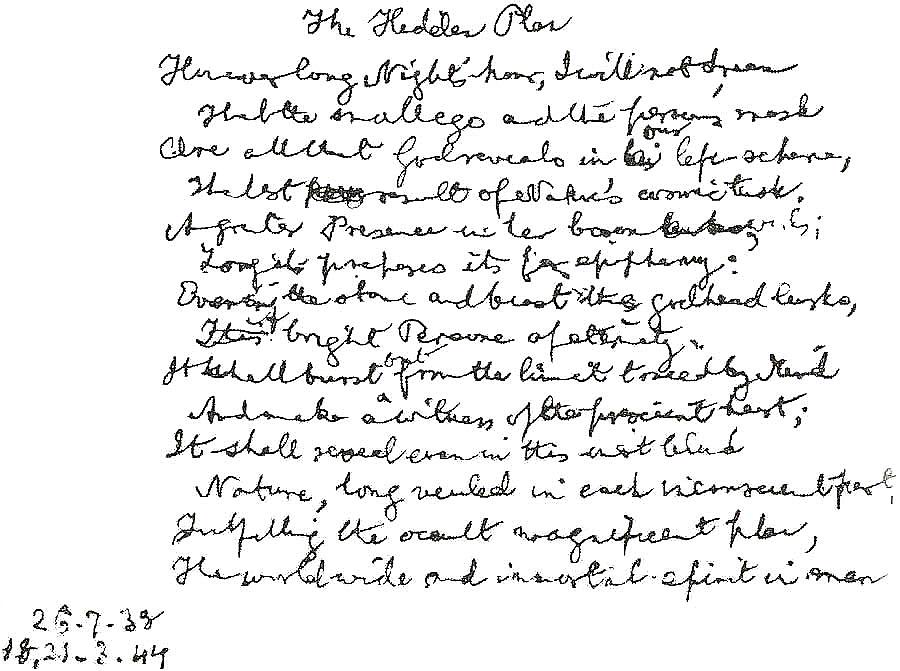 The Hidden Plan
However long Night's hour, I will not dream
That the small ego and the person's mask
Are all that God reveals in our life-scheme,
The last result of Nature's cosmic task.
A greater Presence in her bosom works;
Long it prepares its far epiphany:
Even in the stone and beast the godhead lurks,
A bright Persona of eternity.
It shall burst out from the limit traced by Mind
And make a witness of the prescient heart;
It shall reveal even in this inert blind
Nature, long veiled in each inconscient part,
Fulfilling the occult magnificent plan,
The worldwide and immortal spirit in man
26-7-38
18, 21-3-44